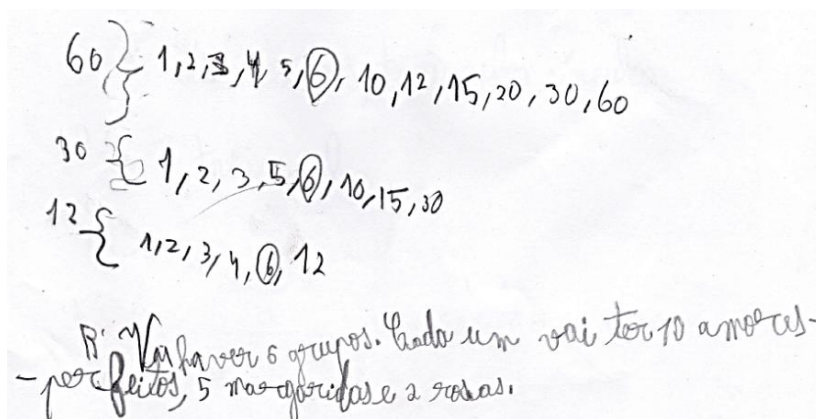 60 } 1, 2, 3, 4, 5, 6, 10, 12, 15, 20, 30, 60
30 { 1, 2, 3, 5, 6, 10, 15, 30
12 { 1, 2, 3, 4, 6, 12
R: Vai haver 6 grupos. Cada um vai ter 10 amores-
-perfeitos, 5 margaridas e 2 rosas.